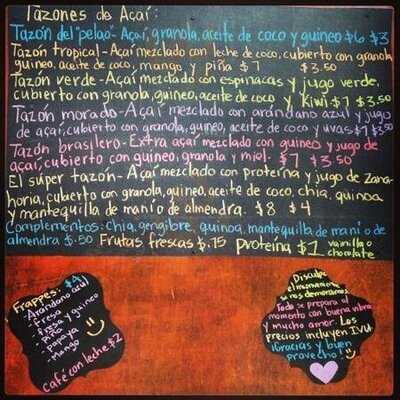 Tazones de Açaí:
Tazón del "pelao"- Açaí, granola, aceite de coco y guineo $6 $3
Tazón tropical- Açaí mezclado con leche de coco, cubierto con granola,
guineo, aceite de coco, mango y piña $7 $3.50
Tazón verde- Açaí mezclado con espinacas y jugo verde,
cubierto con granola, guineo, aceite de coco y kiwi $7 $3.50
Tazón morado- Açaí mezclado con arándano azul y jugo
de açaí, cubierto con granola, guineo, aceite de coco y uvas $7 $3.50
Tazón brasilero- Extra açaí mezclado con guineo y jugo de
açaí, cubierto con guineo, granola y miel. $7 $3.50
El súper tazón- Açaí mezclado con proteína y jugo de zana-
horia, cubierto con granola, guineo, aceite de coco, chia, quinoa
y mantequilla de maní o de almendra. $8 $4
Complementos: Chia, gengibre, quinoa, mantequilla de maní o de
almendra $.50 Frutas frescas $.75 Proteína $1 vainilla o
chocolate
Frappes: $4
- Arándano azul
- fresa
- fresa y guineo
- piña
- papaya
- Mango
café con leche $2
Disculpe
el momento
si nos demoramos.
Todo se prepara al
momento con buena vibra
y mucho amor. Los
precios incluyen IVU.
¡Gracias y buen
provecho!